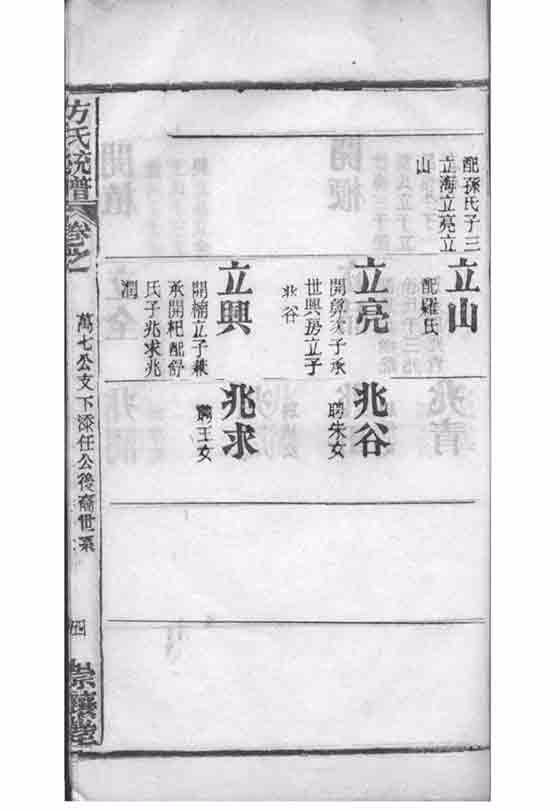 配孫氏子三
立海立亮立
山
立山
配羅氏
立亮
開昇次子承
世興房立子
兆谷
兆谷
聘朱女
立興
開楠立子兼
承開杞配舒
氏子兆求兆
潤
兆求
聘王女
方氏統譜
卷之
萬七公支下添任公後裔世系
四
崇讓堂